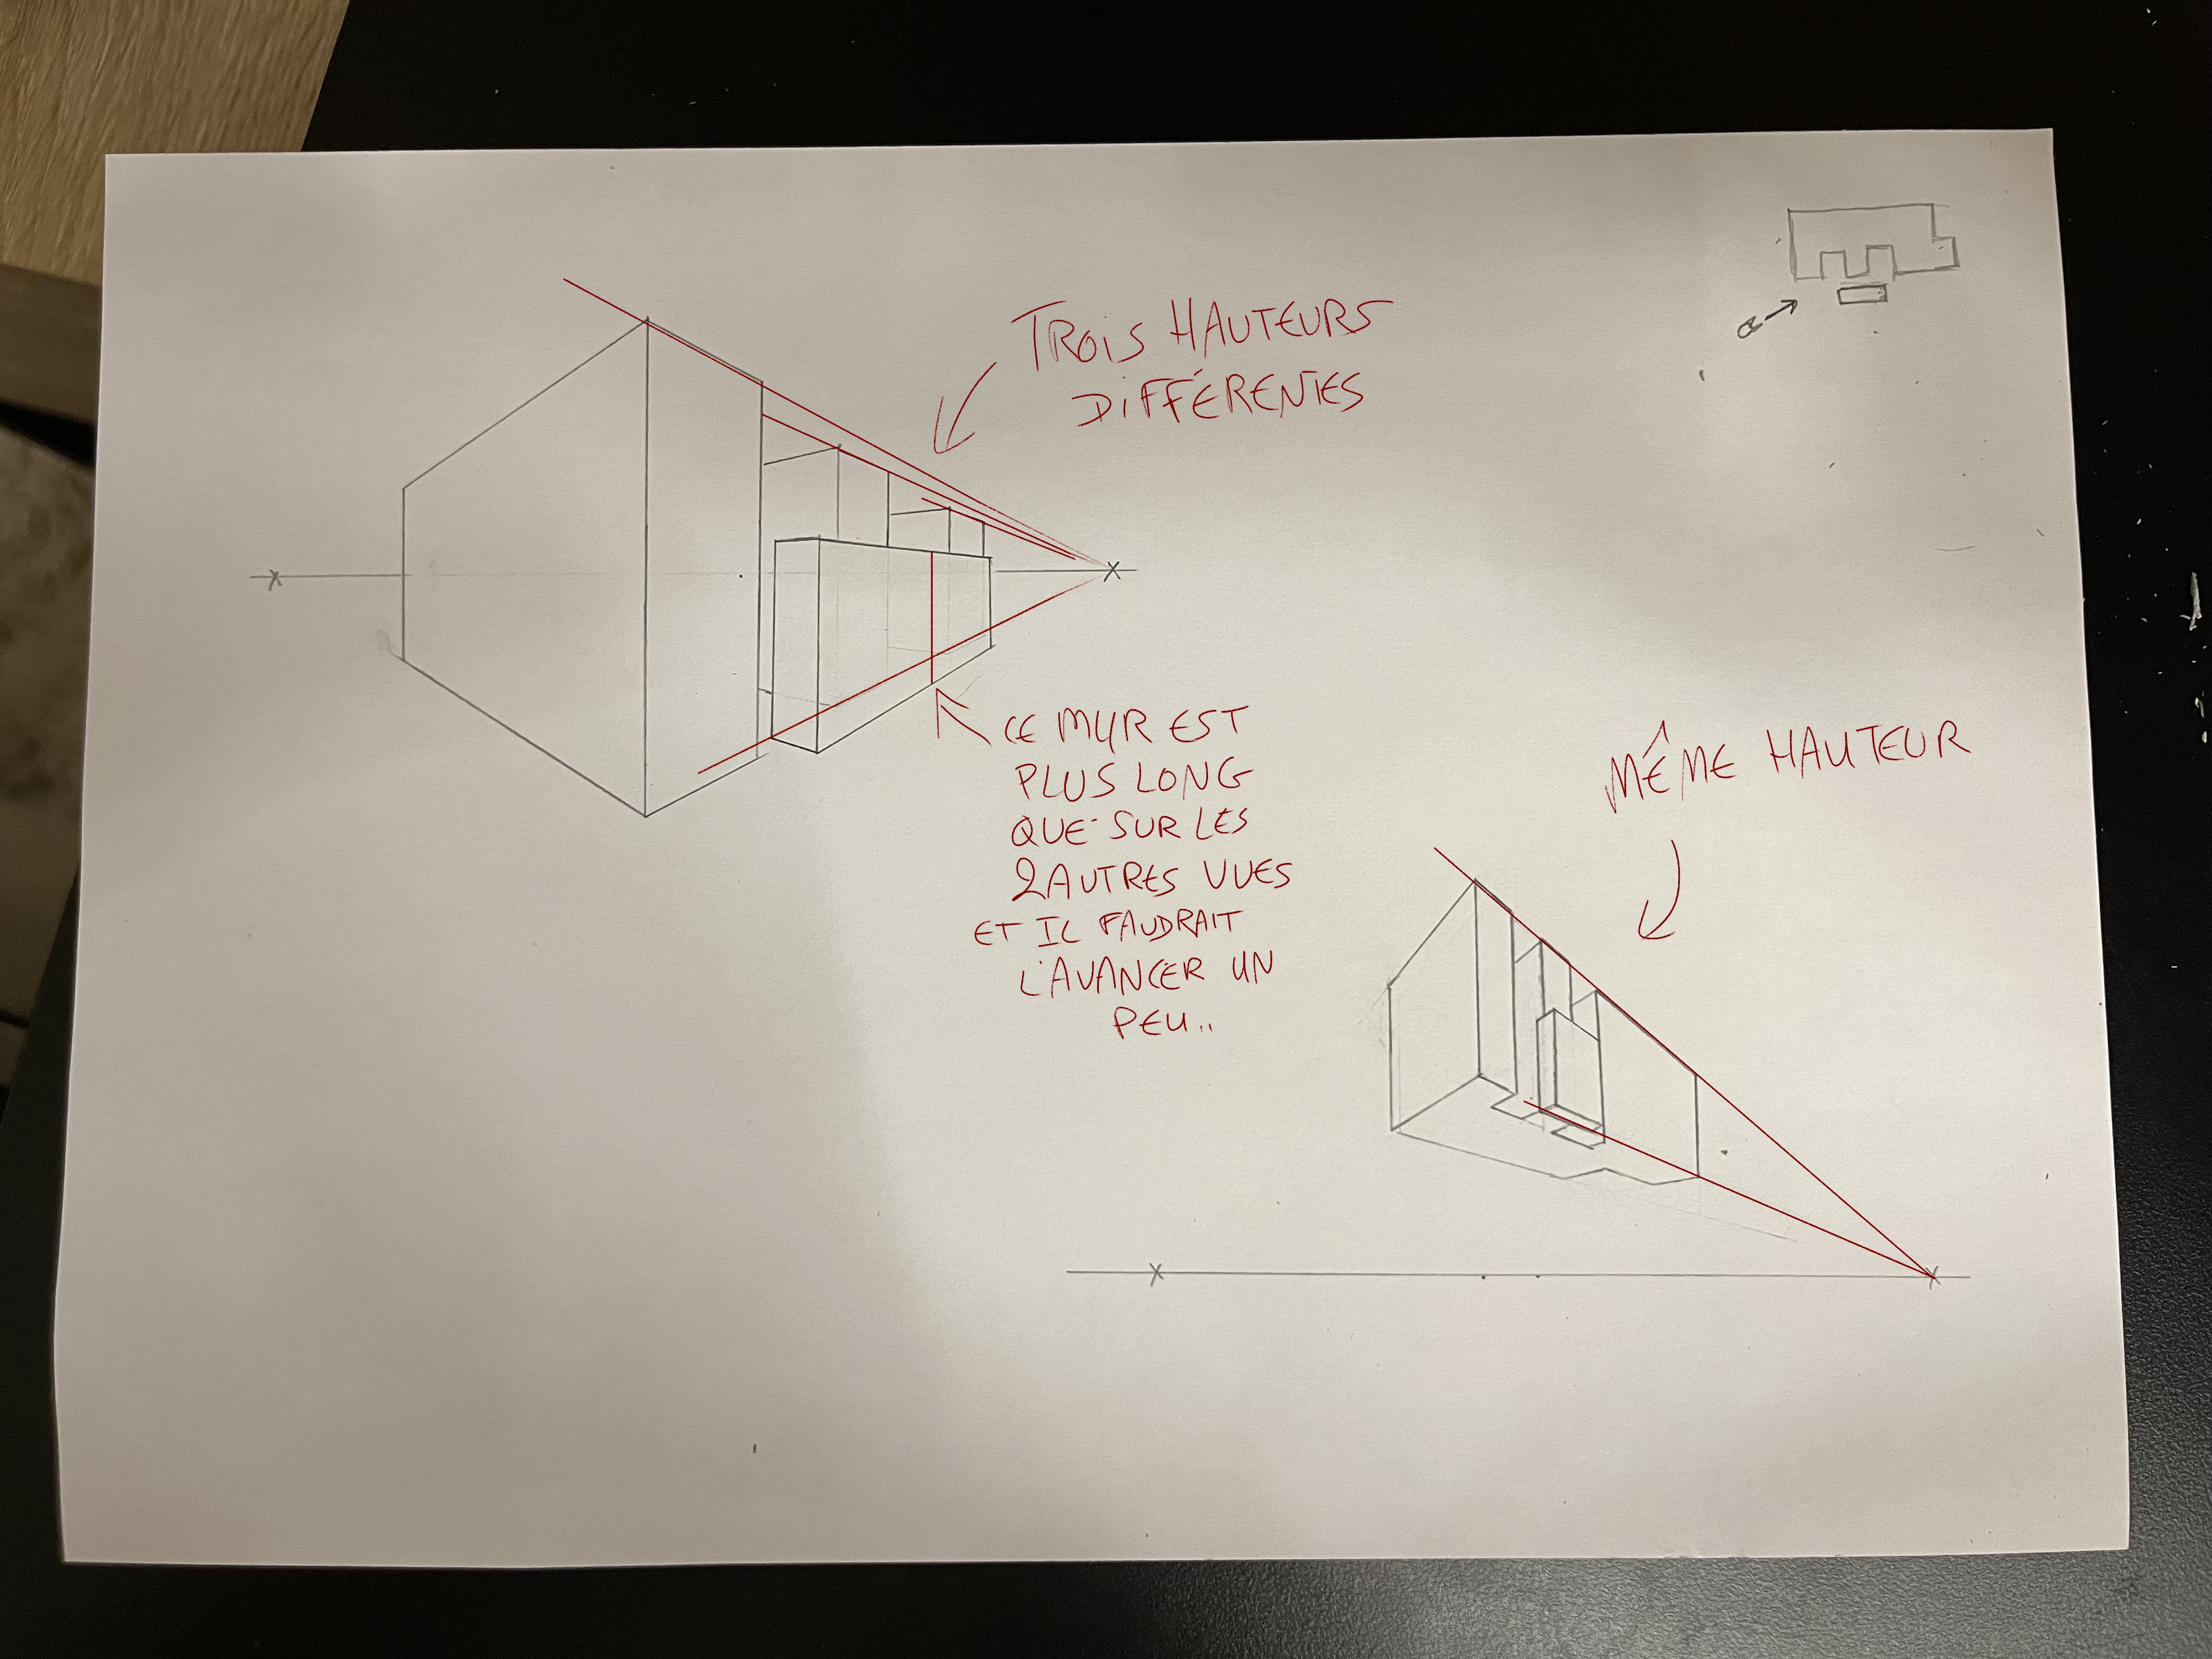 TROIS HAUTEURS
DIFFÉRENTES
CE MUR EST
PLUS LONG
QUE SUR LES
2 AUTRES VUES
ET IL FAUDRAIT
L'AVANCER UN
PEU..
MÊME HAUTEUR